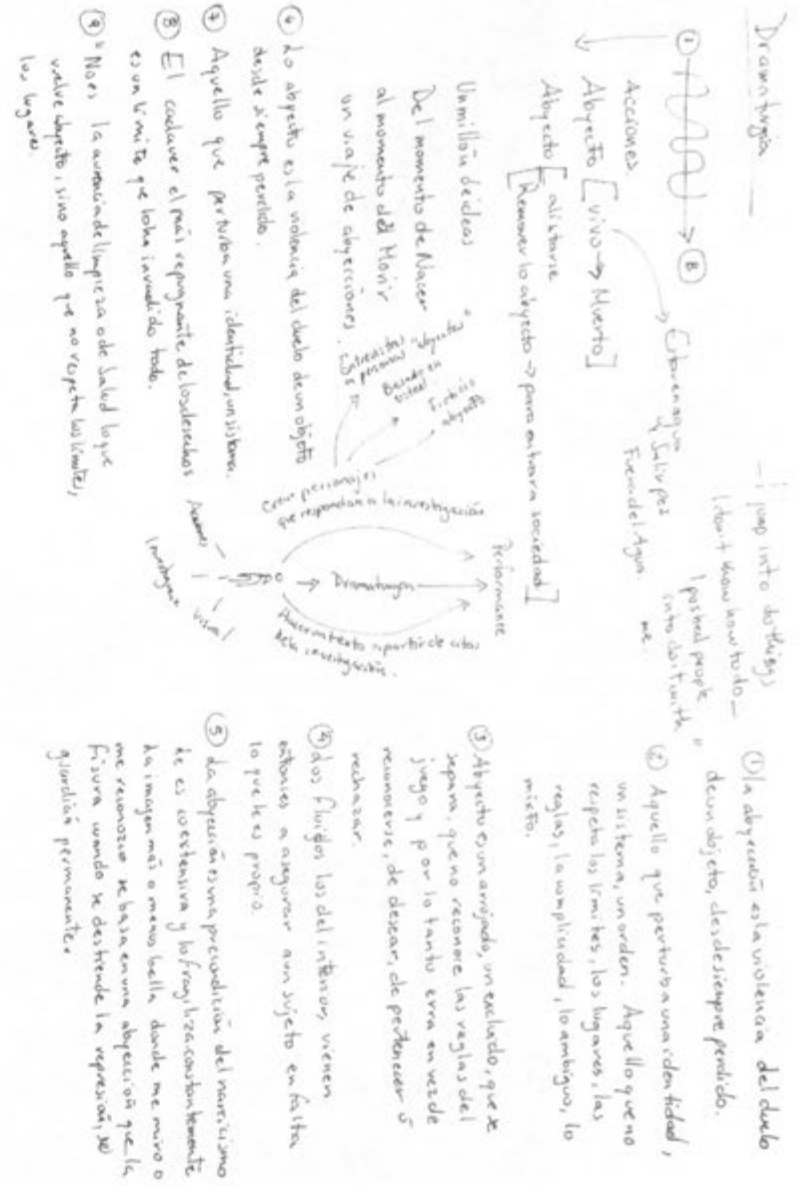 Dramaturgia
1
B
Acciones
Abyecto [vivo → Muerto]
Abyecto [alistarse
[Remover lo abyecto → para entrar a sociedad]
y Salir pez
Fuera del Agua.
Un millón de ideas
Del momento de Nacer
al momento del Morir
un viaje de abyecciones.
Entrevistas
personas "abyectas"
Basado en
Crear personajes
que respondan a la investigación
Performance
Dramaturgia
Acciones
Investigación
Visual
Hacer un texto a partir de citas
de la investigación.
6 Lo abyecto es la violencia del duelo de un objeto
desde siempre perdido.
7 Aquello que perturba una identidad, un sistema.
8 El cadaver el más repugnante de los desechos
es un límite que lo ha invadido todo.
9 "No es la ausencia de limpieza o de salud lo que
vuelve abyecto, sino aquello que no respeta los límites,
los lugares.
— I jump into do things
I don't know how to do —
I pushed people
into do it with
me.
1 La abyección es la violencia del duelo
de un objeto, desde siempre perdido.
2 Aquello que perturba una identidad,
un sistema, un orden. Aquello que no
respeta los límites, los lugares, las
reglas, la complicidad, lo ambiguo, lo
mixto.
3 Abyecto es un arrojado, un excluido, que se
separa, que no reconoce las reglas del
juego y por lo tanto erra en vez de
reconocerse, de desear, de pertenecer o
rechazar.
4 Los fluidos los del interior, vienen
entonces a asegurar a un sujeto en falta
lo que le es propio.
5 La abyección es una precondición del narcicismo
le es coextensiva y lo fragiliza constantemente
La imagen más o menos bella donde me miro o
me reconozco se basa en una abyección que la
fisura cuando se destiende la represión, su
guardián permanente.